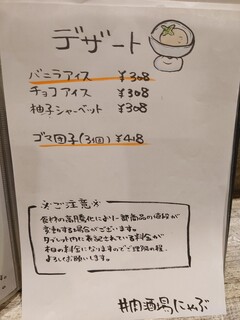 デザート
バニラアイス ¥308
チョコアイス ¥308
柚子シャーベット ¥308
ゴマ団子(3個) ¥418
※ご注意※
食材の高騰化により一部商品の値段が
変動する場合がございます。
タブレット内に表記されている料金が
本日の料金になりますのでご理解の程、
よろしくお願いします。
丼肉酒場にゃぶ